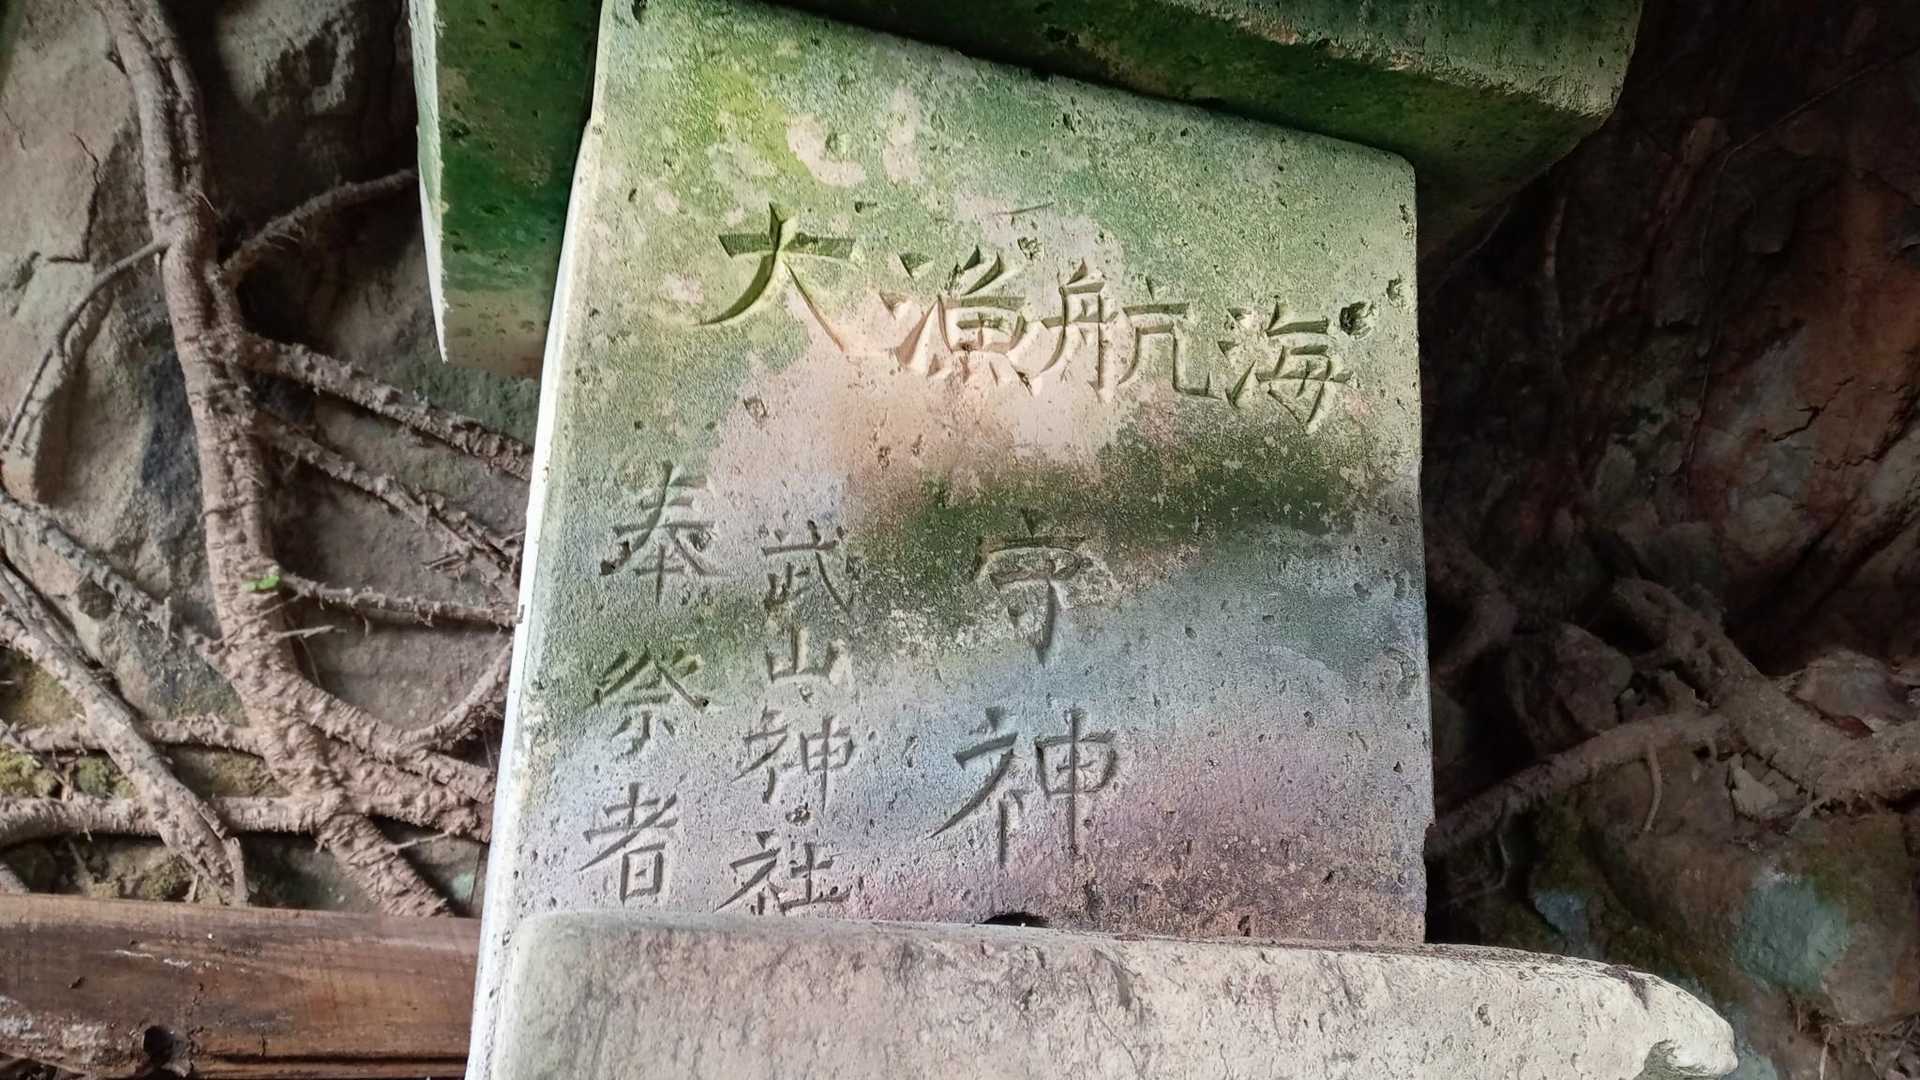 大漁航海
守神
武山神社
奉祭者